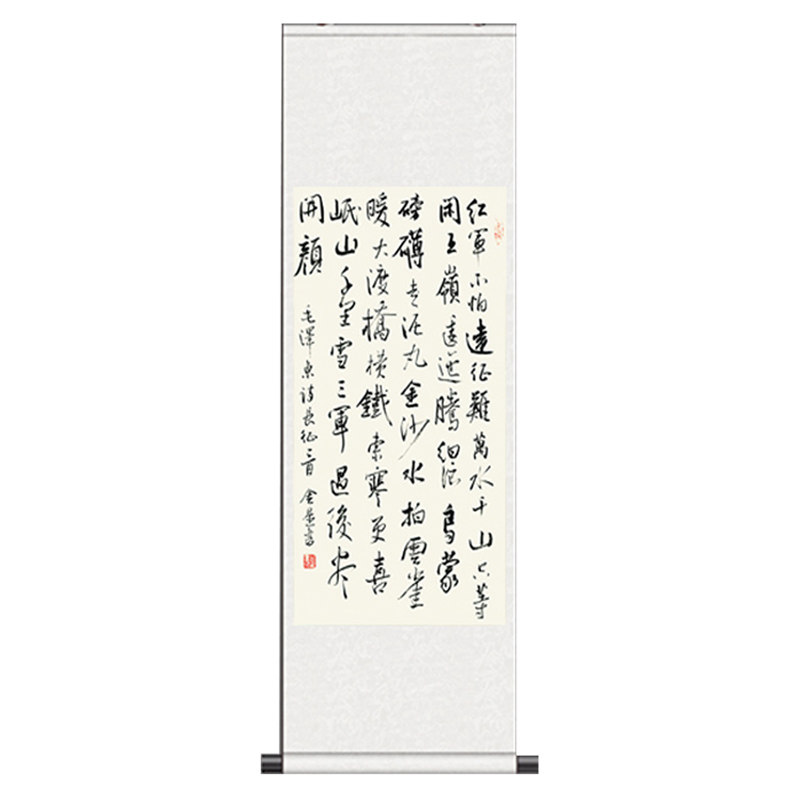 紅軍不怕遠征難萬水千山只等
閑五嶺逶迤騰細浪烏蒙
磅礴走泥丸金沙水拍雲崖
暖大渡橋橫鐵索寒更喜
岷山千里雪三軍過後尽
開顏
毛澤東詩長征一首